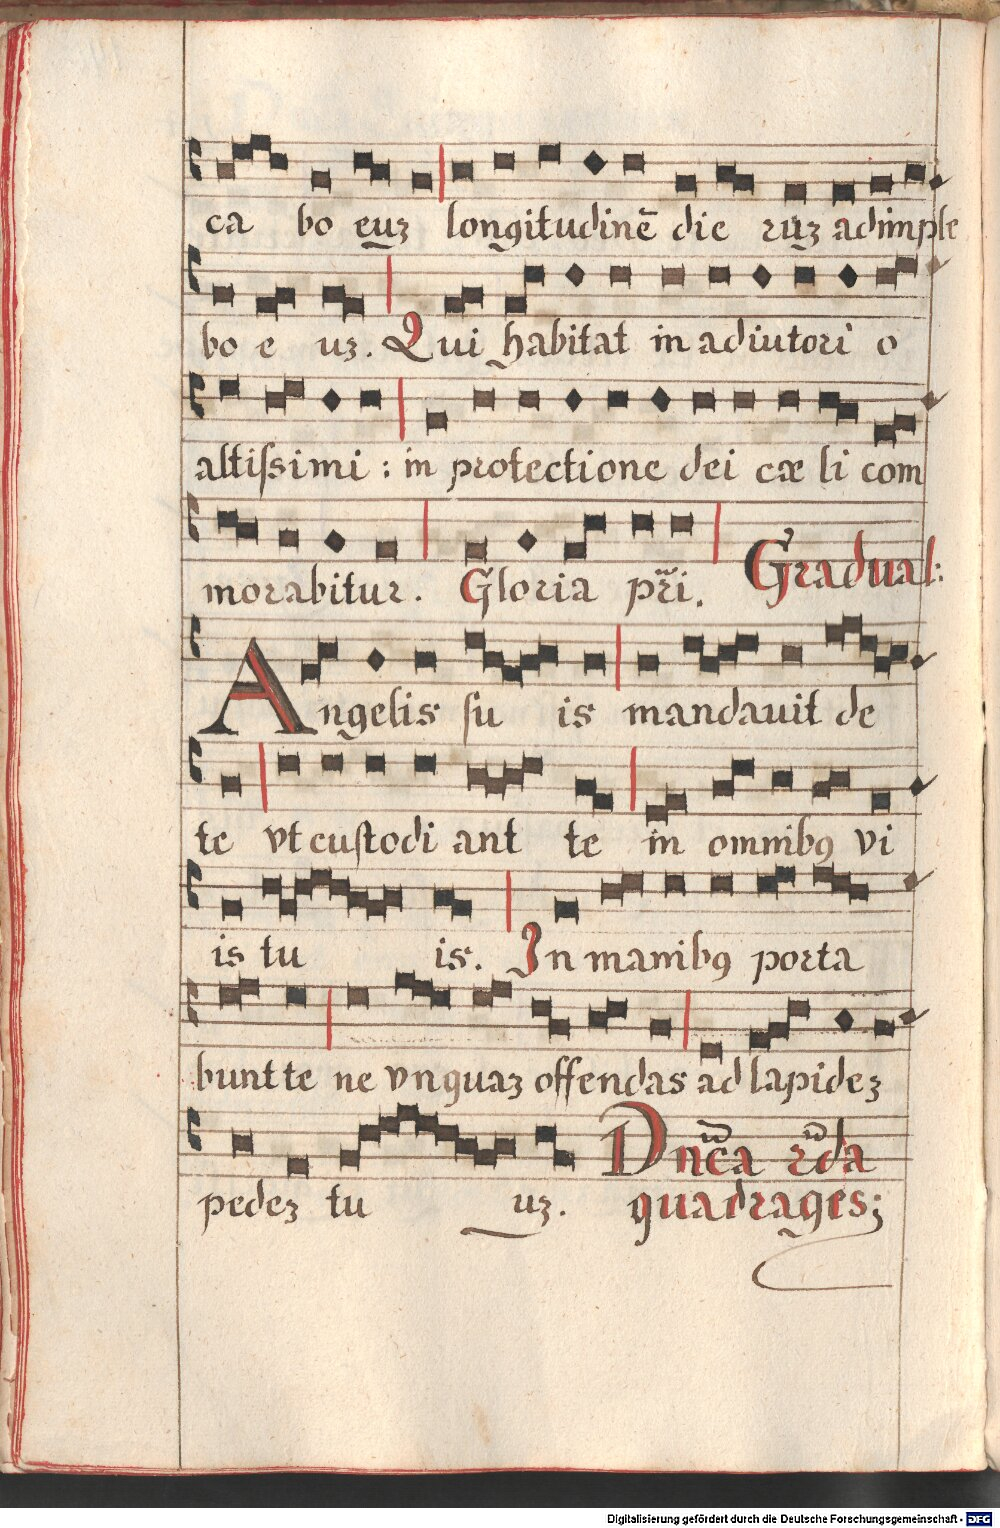 ca bo euꝫ longitudinē die ruꝫ adimple
bo e uꝫ. Qui habitat in adiutori o
altiſsimi : in protectione dei cæ li com
morabitur. Gloria pr̃i. Gradual:
Angelis ſu is mandauit de
te vt cuſtodi ant te in omnibꝰ vi
is tu is. In manibꝰ porta
bunt te ne vnquaꝫ offendas ad lapideꝫ
pedeꝫ tu uꝫ. Dñca 2̃da
quadrages;
Digitalisierung gefördert durch die Deutsche Forschungsgemeinschaft - DFG